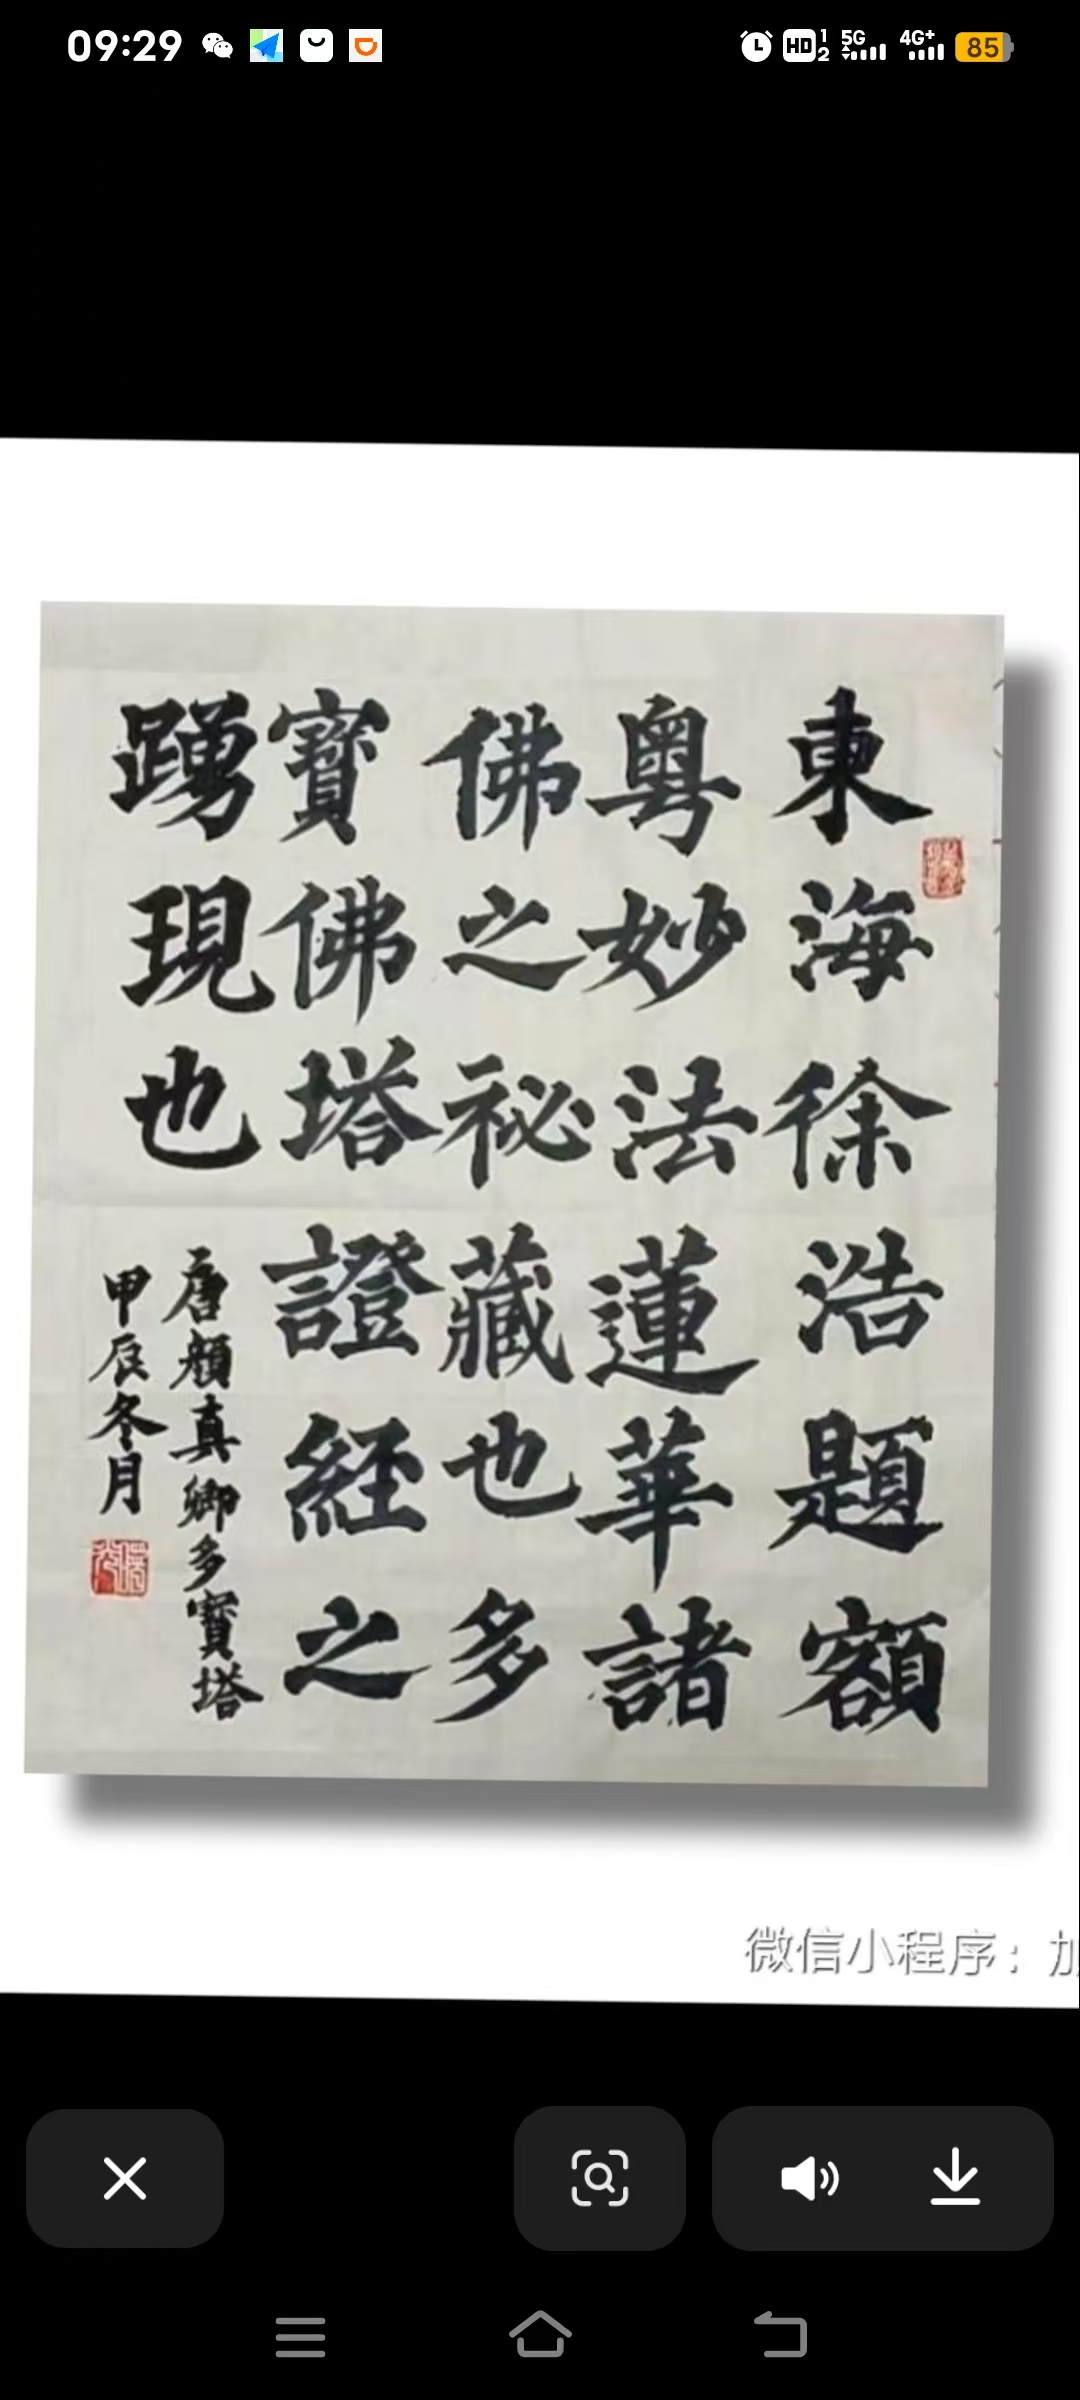 09:29
HD 1 2 5G 4G+ 85
東海徐浩題額
粵妙法蓮華諸
佛之祕藏也多
寶佛塔證經之
踴現也
唐顏真卿多寶塔
甲辰冬月
微信小程序：加